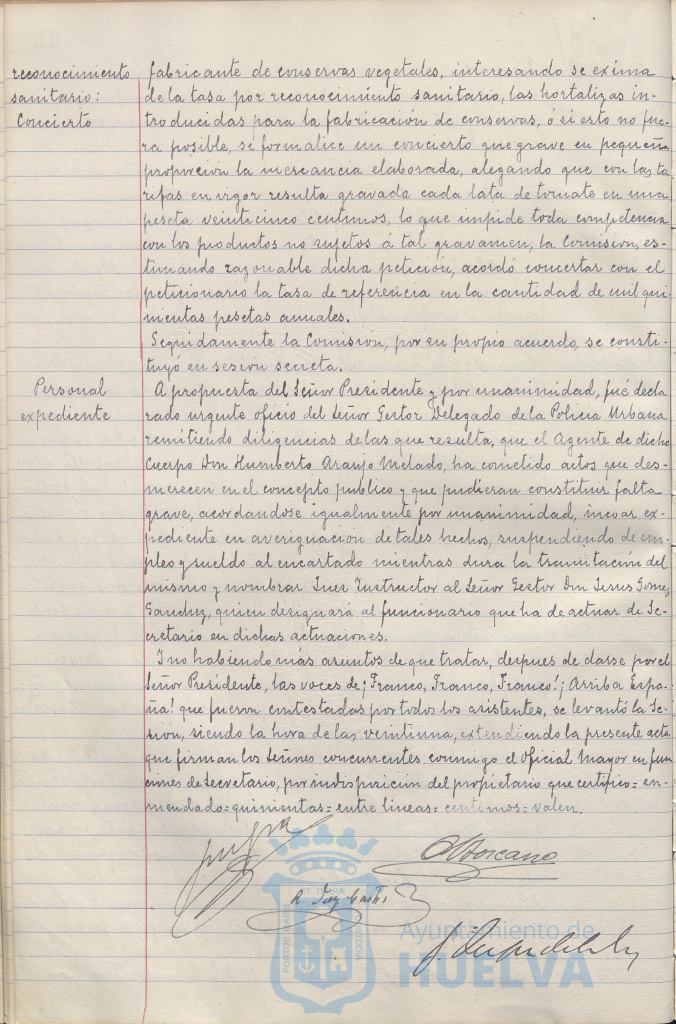 reconocimiento
sanitario:
Concierto
fabricante de conservas vegetales, interesando se exima
de la tasa por reconocimiento sanitario, las hortalizas in-
troducidas para la fabricacion de conservas, ó si esto no fue-
ra posible, se formalice un concierto que grave en pequeña
proporcion la mercancia elaborada, alegando que con las ta
rifas en vigor resulta gravada cada lata de tomate en una
peseta veinticinco centimos, lo que impide toda competencia
con los productos no sujetos á tal gravamen, la Comisión, es-
timando razonable dicha petición, acordó concertar con el
peticionario la tasa de referencia en la cantidad de mil qui-
nientas pesetas anuales.
Seguidamente la Comisión, por su propio acuerdo, se consti-
tuyó en sesión secreta.
Personal
expediente
A propuesta del Señor Presidente y por unanimidad, fué decla
rado urgente oficio del Señor Gestor Delegado de la Policia Urbana
remitiendo diligencias de las que resulta, que el Agente de dicho
Cuerpo Don Humberto Araujo Melado, ha cometido actos que des-
merecen en el concepto publico y que pudieran constituir falta
grave, acordandose igualmente por unanimidad, incoar ex-
pediente en averiguación de tales hechos, suspendiendo de em-
pleo y sueldo al encartado mientras dura la tramitación del
mismo y nombrar Juez Instructor al Señor Gestor Don Jesus Gomez
Sanchez, quien designará al funcionario que ha de actuar de Se-
cretario en dichas actuaciones.
Y no habiendo más asuntos de que tratar, despues de darse por el
Señor Presidente, las voces de ¡Franco, Franco, Franco! ¡Arriba Espa-
ña! que fueron contestadas por todos los asistentes, se levantó la Se-
sión, siendo la hora de las veintiuna, extendiendo la presente acta
que firman los Señores concurrentes conmigo el Oficial Mayor en fun
ciones de Secretario, por indisposición del propietario que certifico = en-
mendado = quinientas = entre lineas = centimos = valen.
Ayuntamiento de
HUELVA